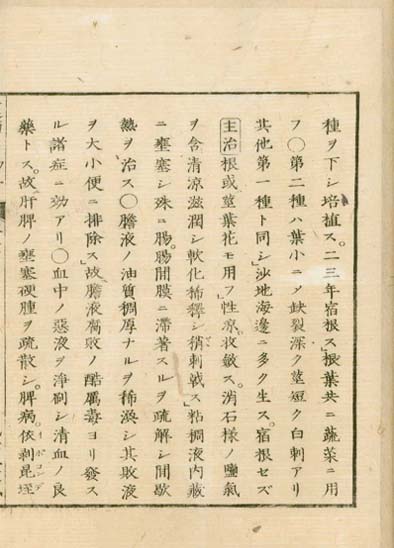 種ヲ下シ培植ス。二三年宿根ス」根葉共ニ蔬菜ニ用
フ〇第二種ハ葉小ニメ缺裂深ク莖短ク白刺アリ
其他第一種ト同シ」沙地海邊ニ多ク生ス。宿根セズ
主治根或莖葉花モ用フ」性凉。收斂ス。消石様ノ鹽氣
ヲ含清凉滋潤シ軟化稀釋シ稍刺戟ス」粘稠液内藏
ニ壅塞シ殊ニ腸。腸間膜ニ滯著スルヲ疏解シ間歇
熱ヲ治ス〇膽液ノ油質稠厚ナルヲ稀淡シ其敗液
ヲ大小便ニ排除ス」故膽液腐敗ノ酷厲毒ヨリ發ス
ル諸症ニ効アリ〇血中ノ惡液ヲ淨刷シ清血ノ良
藥トス。故肝脾ノ壅塞硬腫ヲ疏散シ。脾病。依剥昆垤